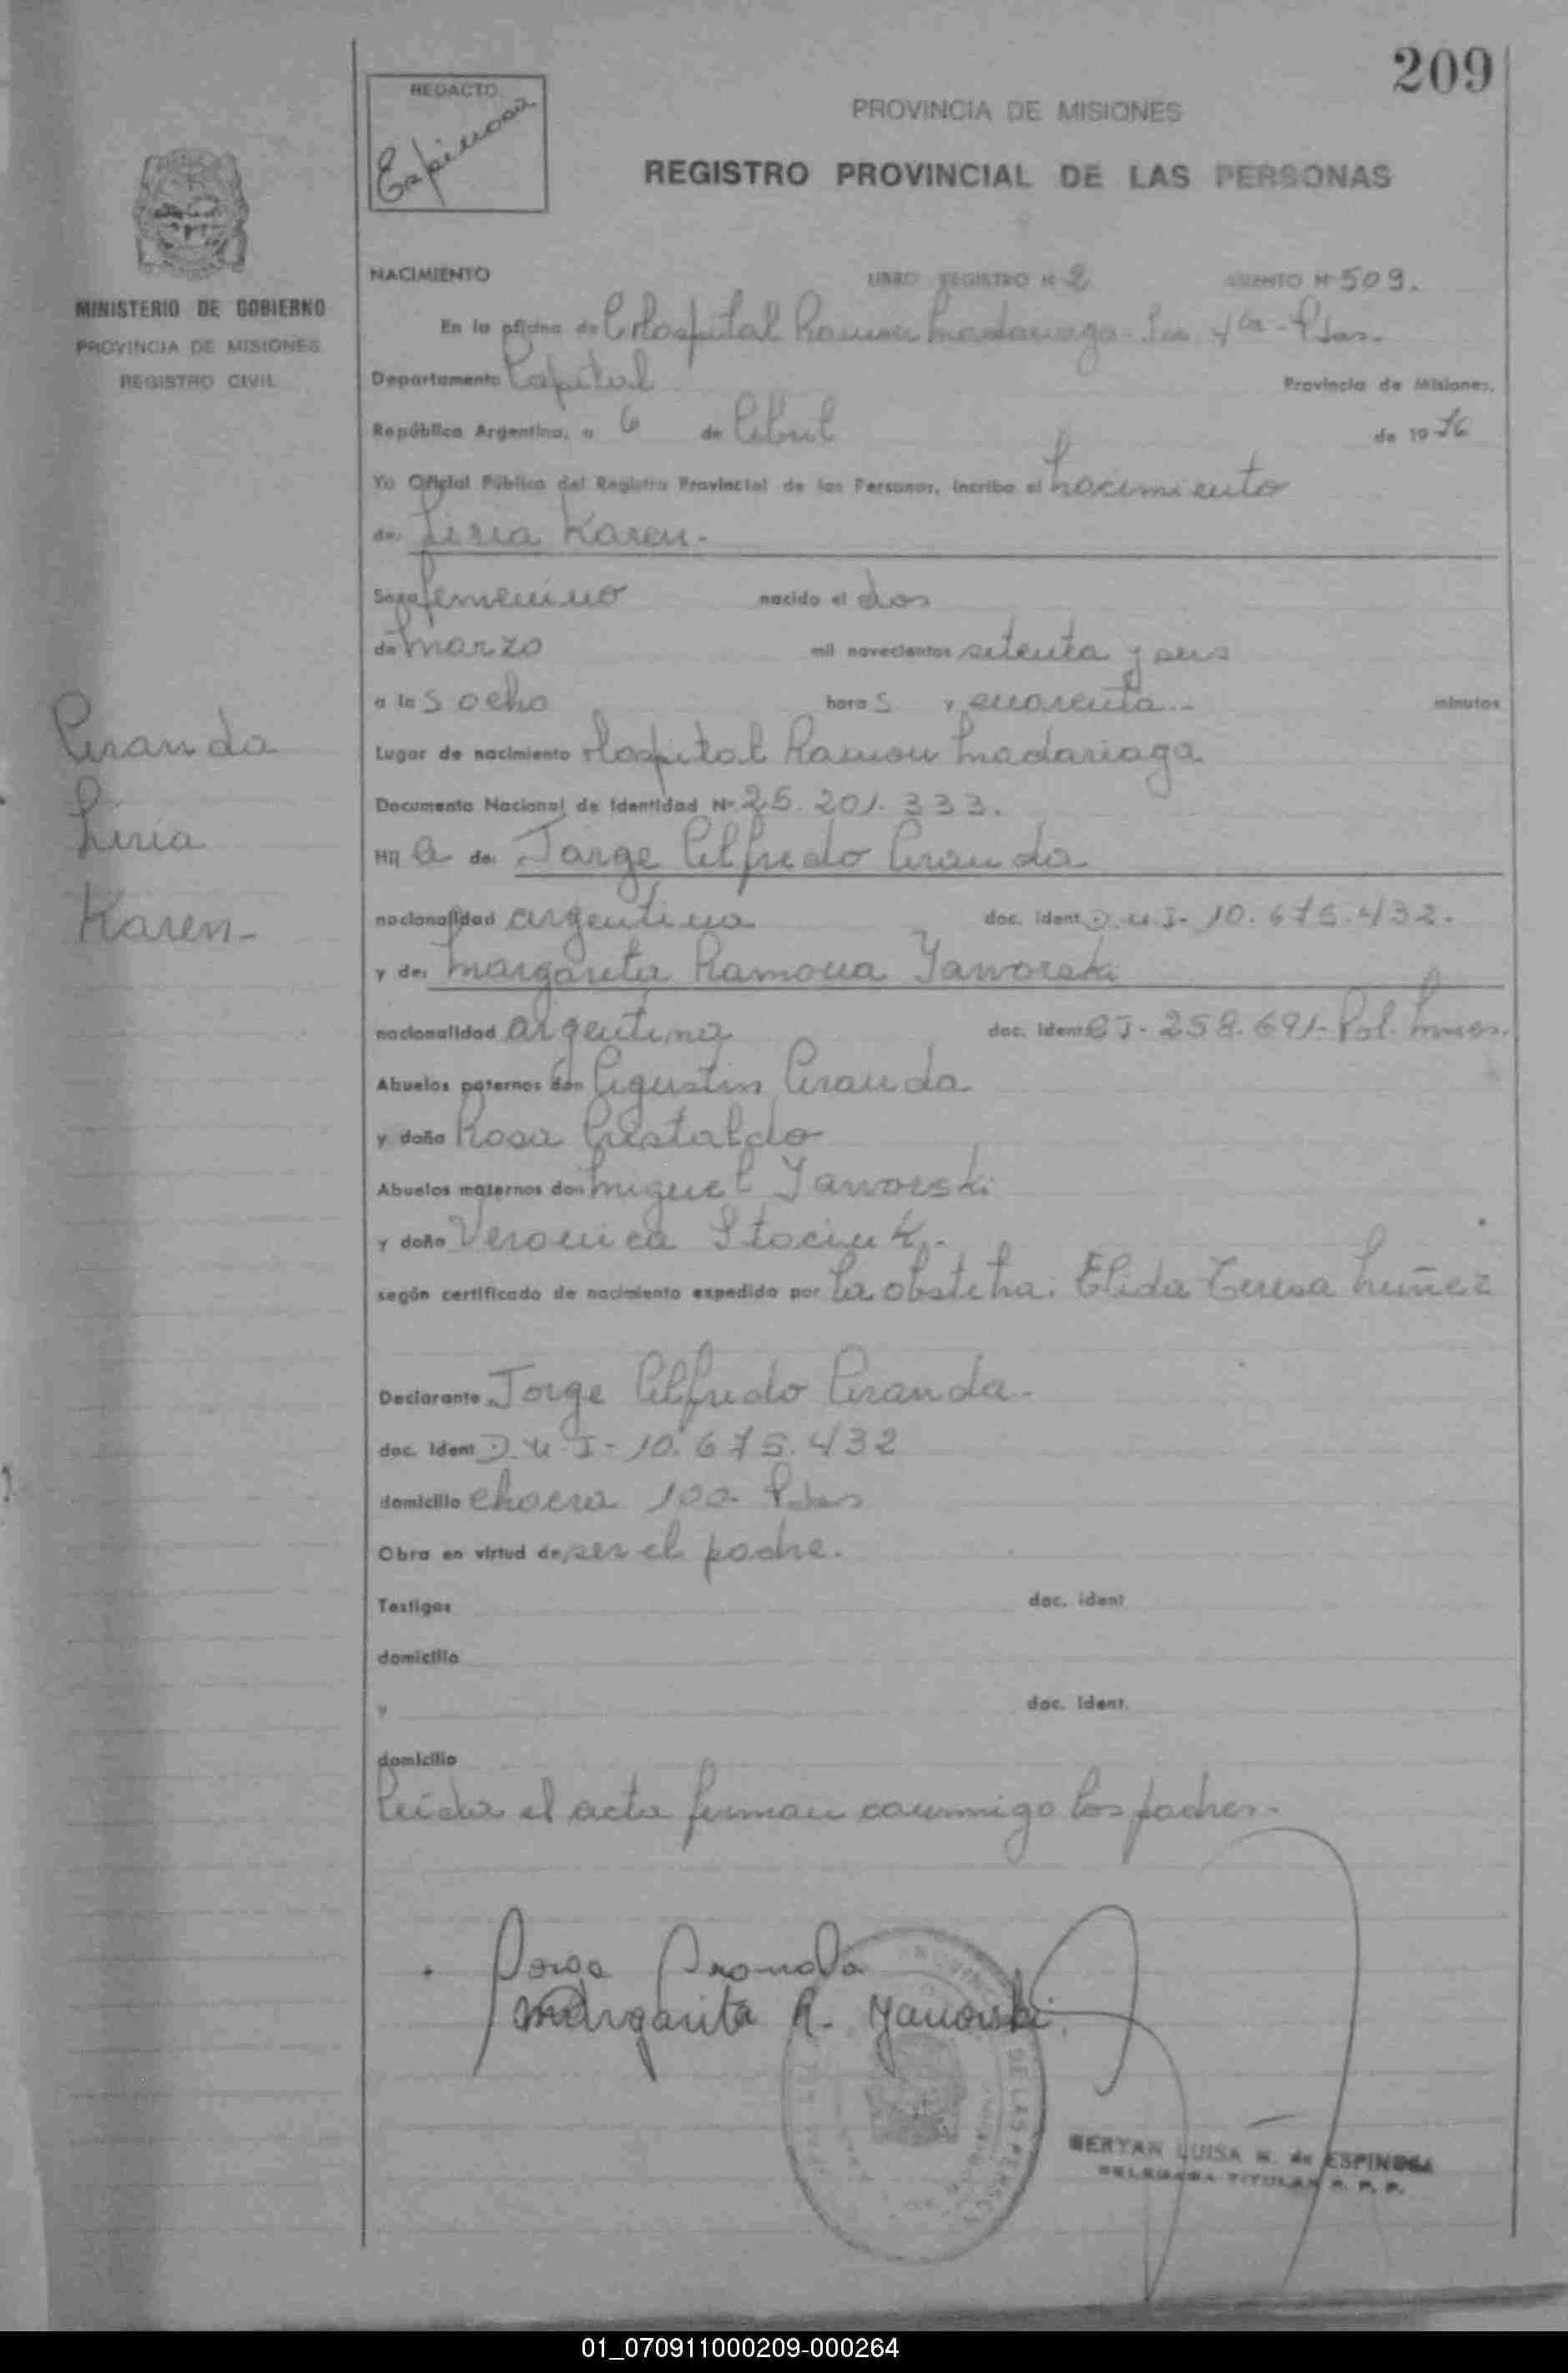 209
REDACTO
Espinosa
PROVINCIA DE MISIONES
REGISTRO PROVINCIAL DE LAS PERSONAS
MINISTERIO DE GOBIERNO
PROVINCIA DE MISIONES
REGISTRO CIVIL
NACIMIENTO LIBRO REGISTRO Nº 2 ASIENTO Nº 509.
En la oficina de Hospital Ramon Madariaga - Pdas.
Departamento Capital Provincia de Misiones,
República Argentina, a 6 de Abril de 1976
Yo Oficial Público del Registro Provincial de las Personas, inscribo el nacimiento
de: Liria Karen.
Sexo femenino nacido el dos
de marzo mil novecientos setenta y seis
a las ocho horas y cuarenta minutos
Aranda
Liria
Karen-
Lugar de nacimiento Hospital Ramon Madariaga
Documento Nacional de Identidad Nº 25.201.333.
Hija de: Jorge Alfredo Aranda
nacionalidad argentina doc. ident D.U.I- 10.675.432.
y de: Margarita Ramona Yaworski
nacionalidad argentina doc. ident CI- 258.691- Pol. Mnes.
Abuelos paternos don Agustin Aranda
y doña Rosa Cristaldo
Abuelos maternos don Miguel Yaworski
y doña Veronica Staciuk.
según certificado de nacimiento expedido por la obsteta: Elida Teresa Nuñez
Declarante Jorge Alfredo Aranda.
doc. ident D.U.I- 10.675.432
domicilio chacra 100- Pdas
Obra en virtud de ser el padre.
Testigos doc. ident
domicilio
y doc. ident.
domicilio
Leida el acta firman conmigo los padres-
Jorge Aranda
Margarita R. Yaworski
DE LAS PERSONAS
BERYAN LUISA N. de ESPINOSA
DELEGADA TITULAR R. P. P.
01_070911000209-000264